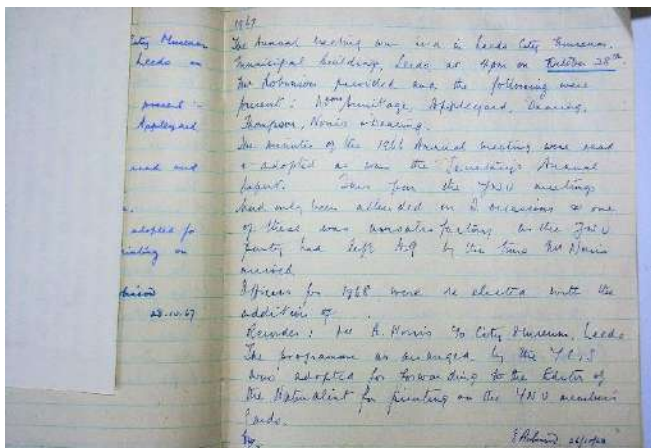 City Museum
Leeds on
present :-
Appleyard
read and
adopted for
printing on
28.10.67
1967
The Annual meeting was held in Leeds City Museum,
Municipal Building, Leeds at 4pm on October 28th.
Mr Robinson presided and the following were
present: Armitage, Appleyard, Dearing,
Thompson, Norris & Dearing.
The minutes of the 1966 Annual meeting were read
& adopted as was the Secretary's Annual
Report. This year the YNU meetings
had only been attended on 2 occasions & one
of these was unsatisfactory as the YNU
party had left H.Q by the time Mr Norris
arrived.
Officers for 1968 were re elected with the
addition of
Recorder: Mr A. Norris % City Museum, Leeds
The programme as arranged by the
was adopted for forwarding to the Editor of
the Naturalist for printing on the YNU members
Cards.